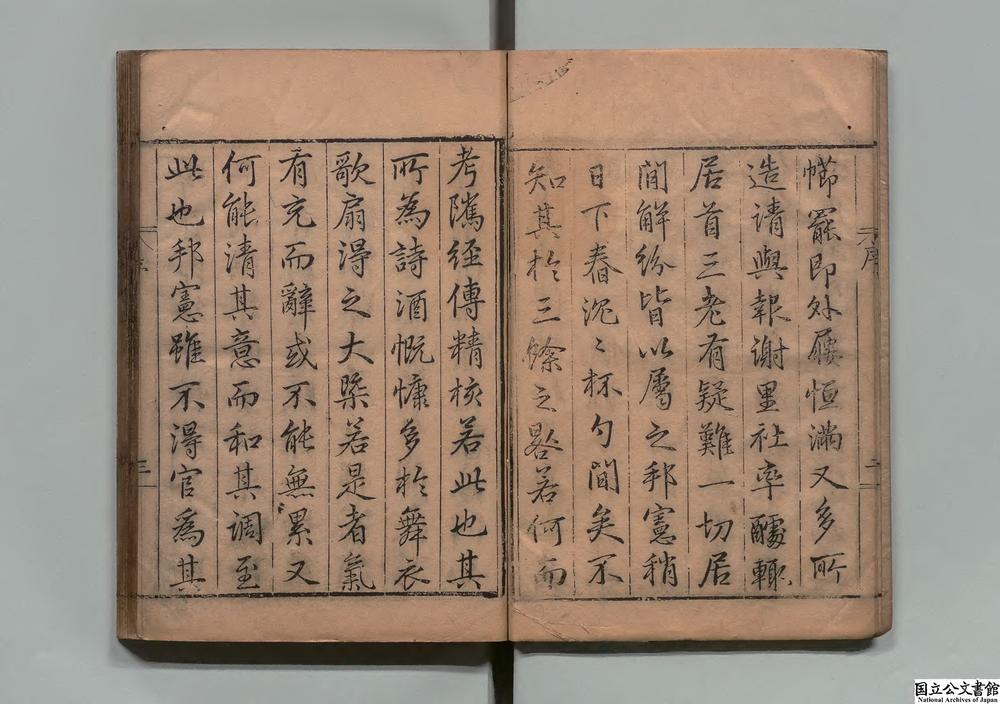 序
二
幘罷即外屨恒滿又多所
造請與報謝里社率醵輒
居首三老有疑難一切居
間解紛皆以屬之邦憲稍
日下舂沉〻杯勺間矣不
知其於三餘之晷若何而
考隲經傳精核若此也其
所為詩酒慨慷多於舞衣
歌扇得之大槩若是者氣
有充而辭或不能無累又
何能清其意而和其調至
此也邦憲雖不得官爲其
序
三
国立公文書館
National Archives of Japan